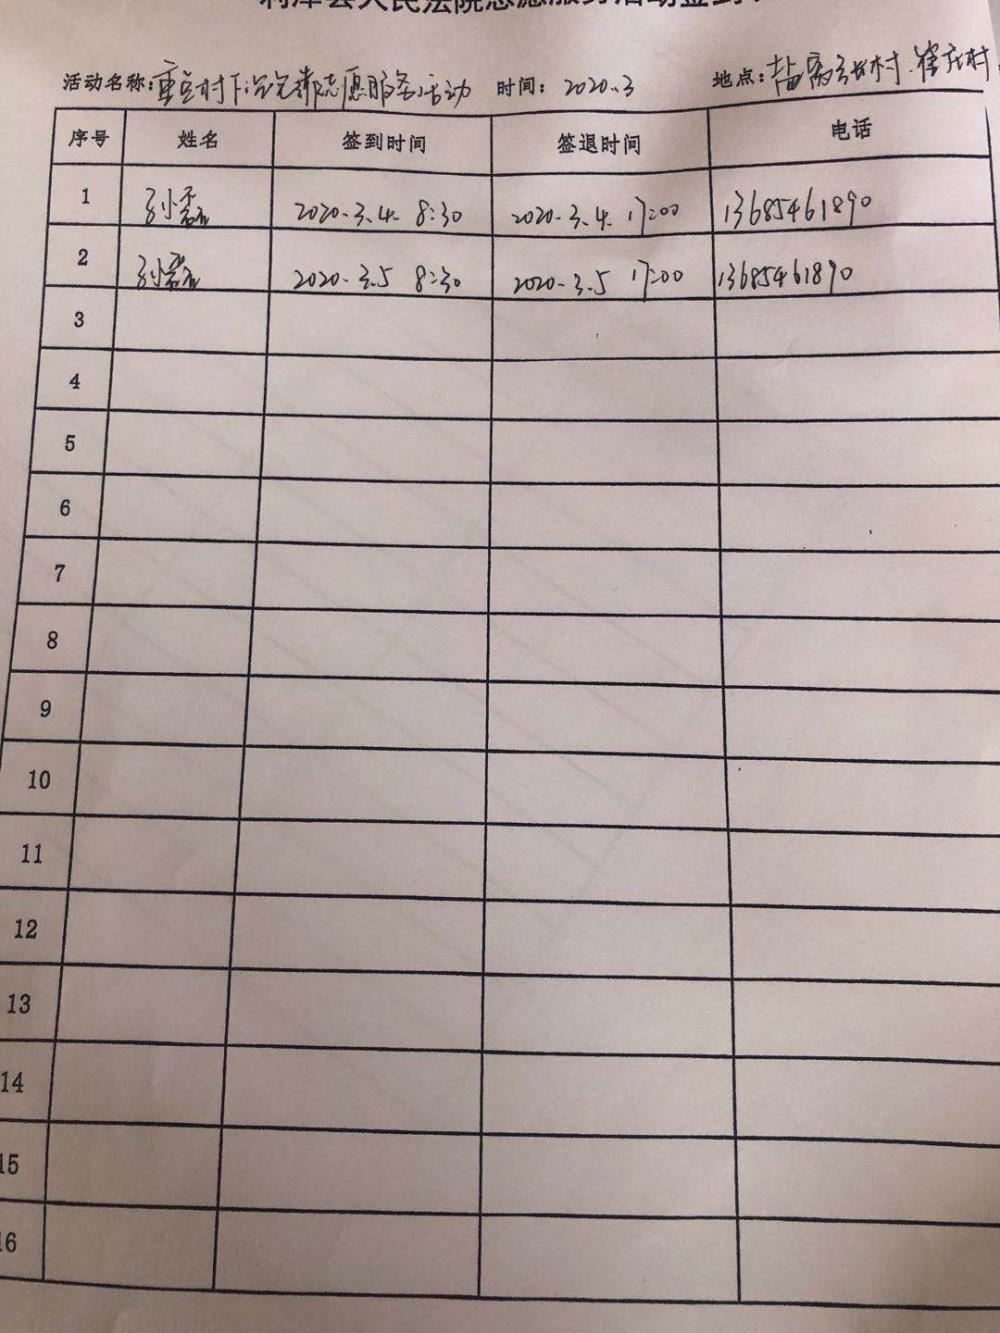 利津县人民法院志愿服务活动签到
活动名称:重点村下沉党建志愿服务活动 时间: 2020.3 地点: 村.崔庄村
序号 姓名 签到时间 签退时间 电话
1 孙磊 2020.3.4. 8:30 2020.3.4. 17:00 13685461890
2 孙磊 2020.3.5 8:30 2020.3.5 17:00 13685461890
3
4
5
6
7
8
9
10
11
12
13
14
15
16